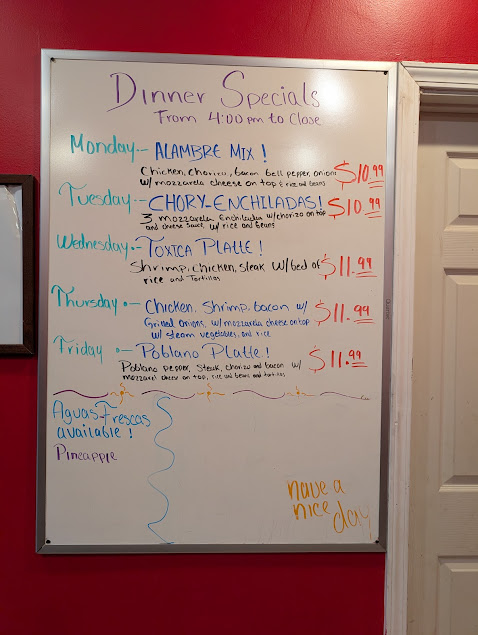 Dinner Specials
From 4:00 pm to Close
Monday-- ALAMBRE MIX !
Chicken, Chorizo, bacon bell pepper, onion
w/ mozzarela cheese on top & rice and beans
$10.99
Tuesday-- CHORY-ENCHILADAS!
3 mozzarela Enchiladas w/chorizo on top
and cheese sauce w/ rice and beans
$10.99
Wednesday-- TOXICA PLATTE !
Shrimp, Chicken, Steak W/bed of
rice and Tortillas
$11.99
Thursday-- Chicken, Shrimp, bacon w/
Grilled Onions, w/mozzarela cheese on top
w/ steam vegetables, and rice
$11.99
Friday -- Poblano Platte !
Poblano pepper, Steak, chorizo and bacon w/
mozzarel cheese on top, rice and beans and tortillas
$11.99
Aguas-Frescas
available !
Pineapple
have a
nice
day